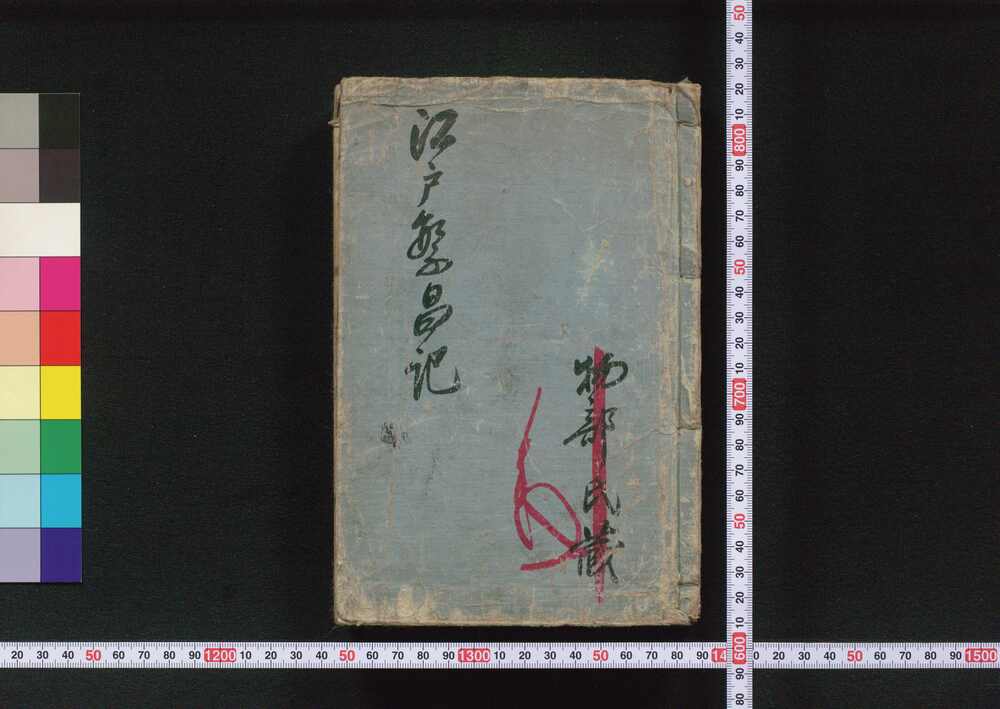 物部氏蔵
江戸繁昌記
50
40
30
20
10
800
90
80
70
60
50
40
30
20
10
700
90
80
70
60
50
40
30
20
10
600
90
80
20 30 40 50 60 70 80 90 1200 10 20 30 40 50 60 70 80 90 1300 10 20 30 40 50 60 70 80 90 14 20 30 40 50 60 70 80 90 1500